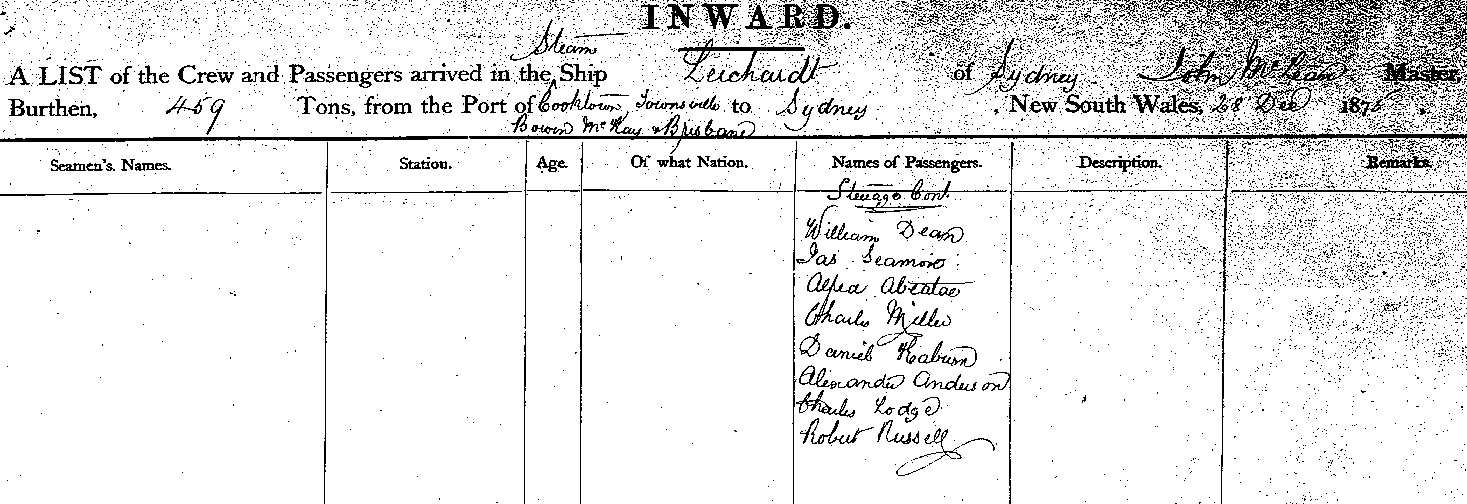 INWARD.
Steam
A LIST of the Crew and Passengers arrived in the Ship Leichardt of Sydney John McLean Master,
Burthen, 459 Tons, from the Port of Cooktown Townsville to Sydney , New South Wales, 28 Dec 1875.
Bowen McKay & Brisbane
Seamen's Names. Station. Age. Of what Nation. Names of Passengers. Description. Remarks.
Steerage Cont
William Dean
Jas Seamore
Charles Miller
Daniel
Alexander Anderson
Charles Lodge
Robert Russell